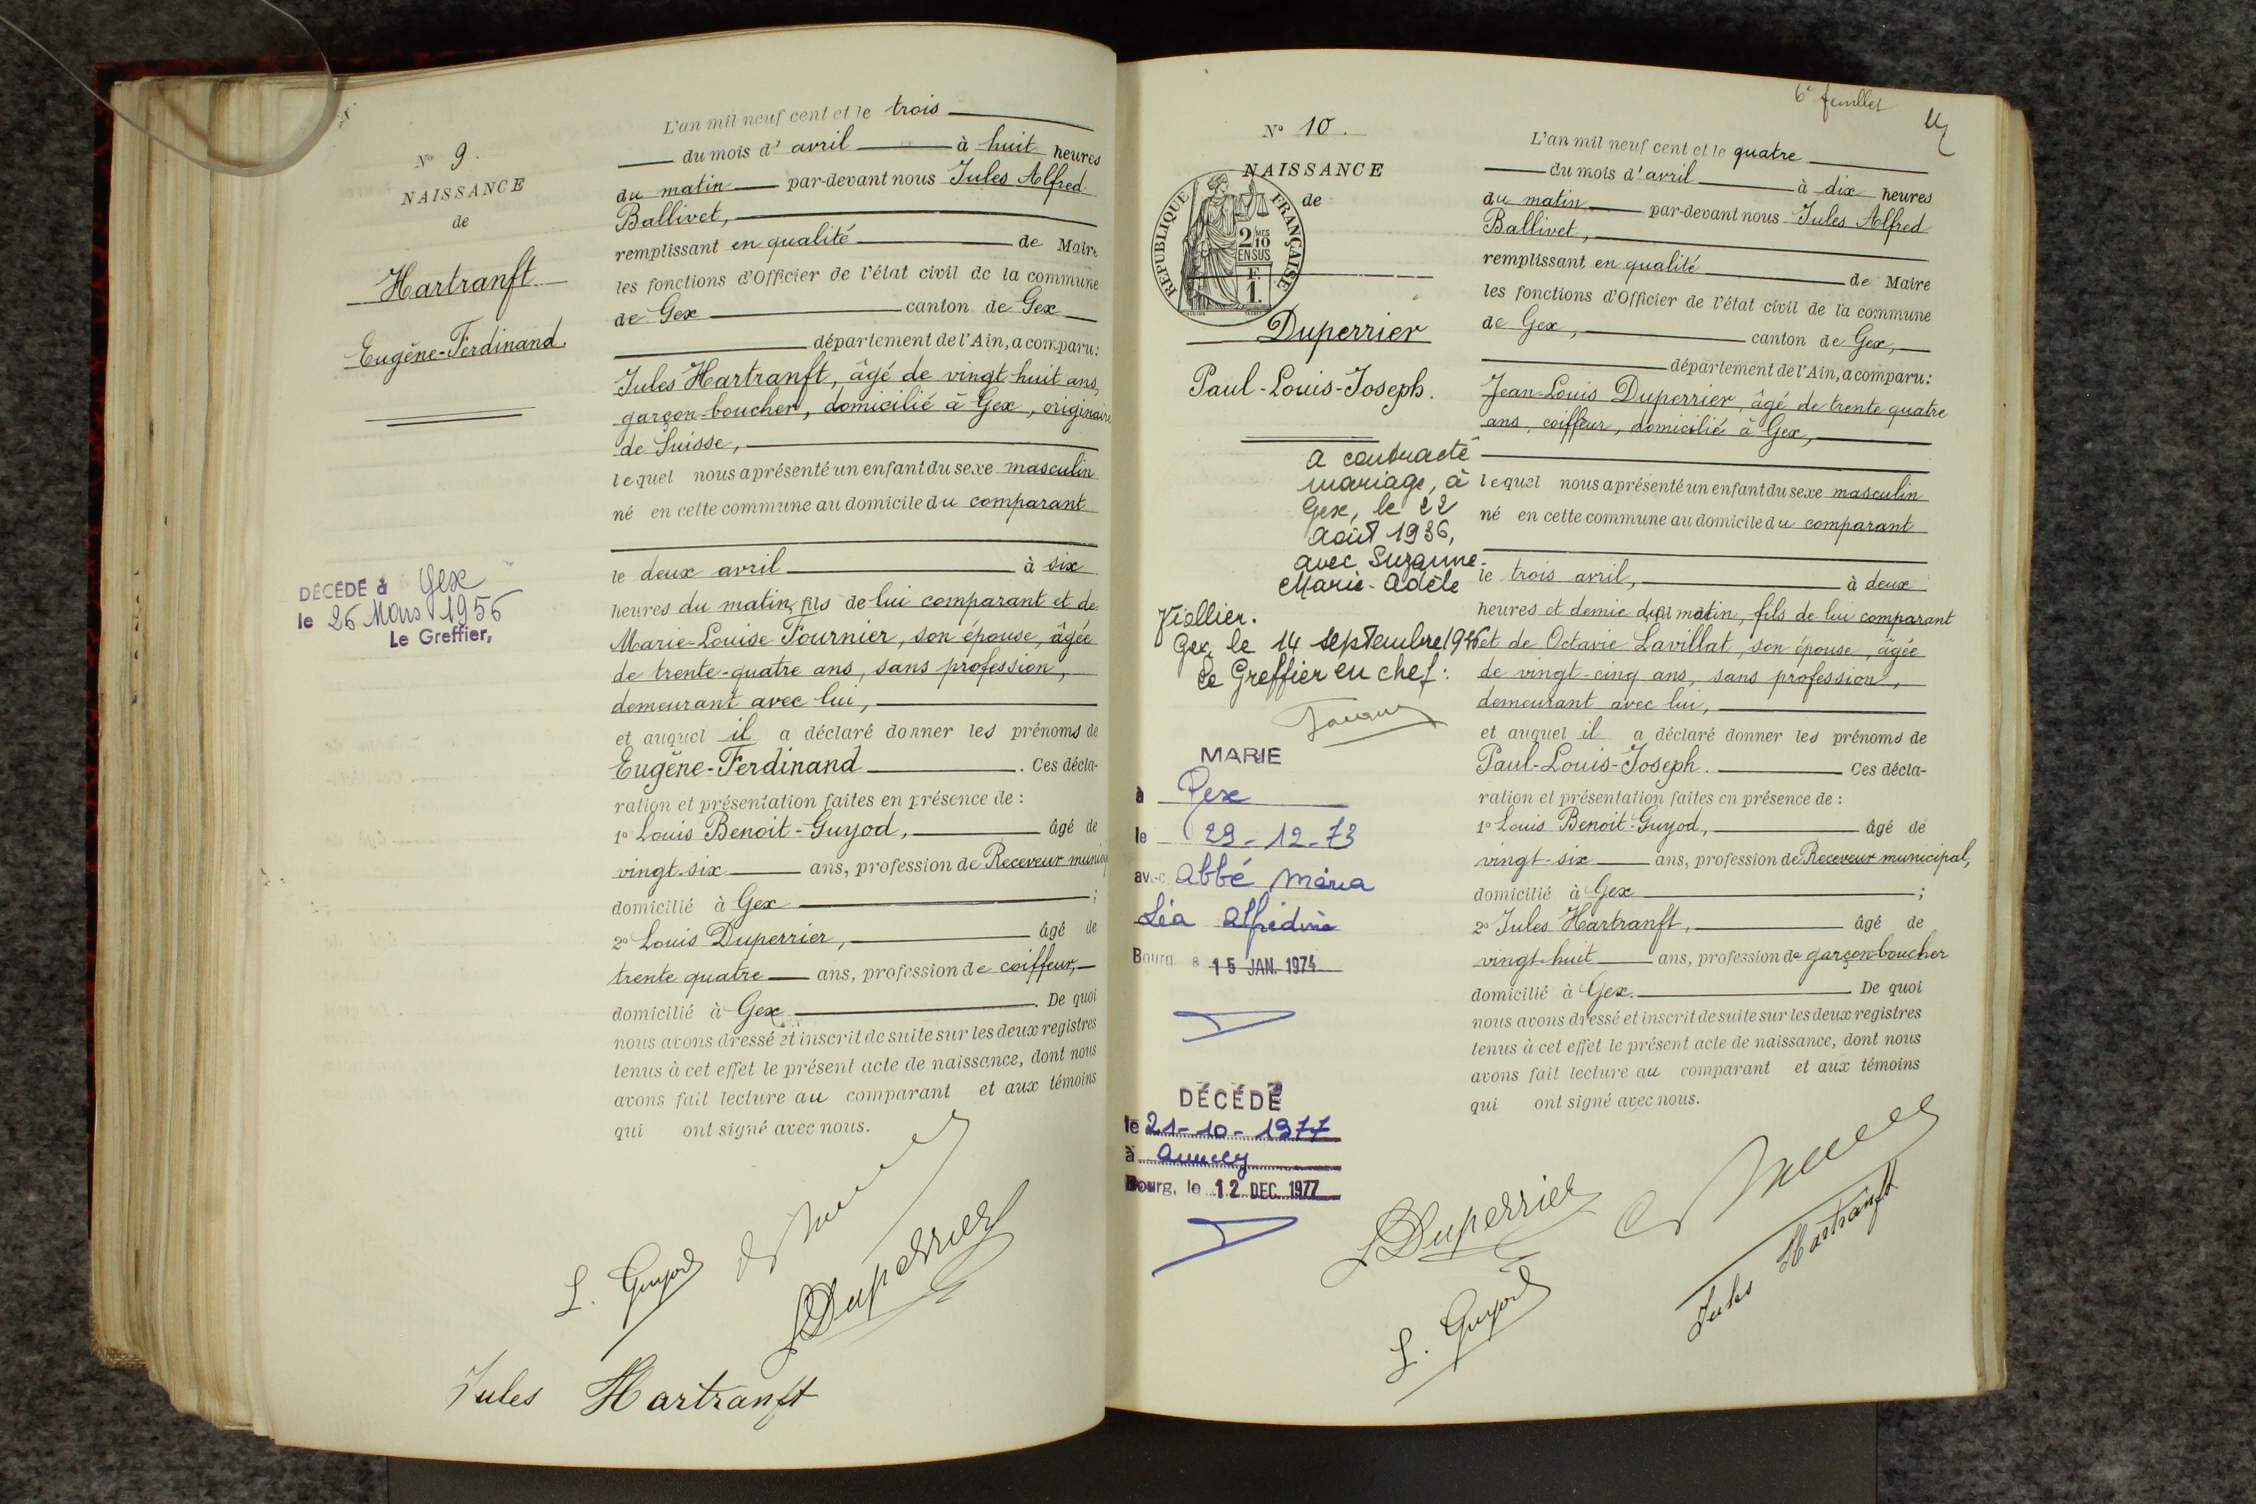 N° 9.
NAISSANCE
de
Hartranft
Eugène-Ferdinand
DÉCÉDÉ à Gex
le 26 Mars 1956
Le Greffier,
L'an mil neuf cent et le trois
du mois d'avril à huit heures
du matin par-devant nous Jules Alfred
Ballivet,
remplissant en qualité de Maire
les fonctions d'Officier de l'état civil de la commune
de Gex canton de Gex
département de l'Ain, a comparu:
Jules Hartranft, âgé de vingt-huit ans,
garçon-boucher, domicilié à Gex, originaire
de Suisse,
lequel nous a présenté un enfant du sexe masculin
né en cette commune au domicile du comparant
le deux avril à six
heures du matin, fils de lui comparant et de
Marie-Louise Fournier, son épouse, âgée
de trente-quatre ans, sans profession,
demeurant avec lui,
et auquel il a déclaré donner les prénoms de
Eugène-Ferdinand. Ces décla-
ration et présentation faites en présence de :
1° Louis Benoit-Guyod, âgé de
vingt-six ans, profession de Receveur munici
domicilié à Gex ;
2° Louis Duperrier, âgé de
trente quatre ans, profession de coiffeur,
domicilié à Gex. De quoi
nous avons dressé et inscrit de suite sur les deux registres
tenus à cet effet le présent acte de naissance, dont nous
avons fait lecture au comparant et aux témoins
qui ont signé avec nous.
L. Guyod
LDuperrier
Jules Hartranft
6e feuillet
N° 10.
NAISSANCE
de
REPUBLIQUE FRANÇAISE
2 MES
10
EN SUS
F.
1.
Duperrier
Paul-Louis-Joseph.
a contracté
mariage, à
Gex, le 22
Août 1936,
avec Suzanne-
Marie-Adèle
Viollier.
Gex, le 14 septembre 1936
Le Greffier en chef:
MARIE
à Gex
le 29-12-73
avec Abbé Maria
Léa Alfrédine
Bourg 15 JAN. 1974
DÉCÉDÉ
le 21-10-1977
à Annecy
Bourg, le 12 DEC. 1977
L'an mil neuf cent et le quatre
du mois d'avril à dix heures
du matin par-devant nous Jules Alfred
Ballivet,
remplissant en qualité de Maire
les fonctions d'Officier de l'état civil de la commune
de Gex, canton de Gex,
département de l'Ain, a comparu:
Jean-Louis Duperrier, âgé de trente quatre
ans, coiffeur, domicilié à Gex,
lequel nous a présenté un enfant du sexe masculin
né en cette commune au domicile du comparant
le trois avril, à deux
heures et demie du matin, fils de lui comparant
et de Octavie Lavillat, son épouse, âgée
de vingt-cinq ans, sans profession,
demeurant avec lui,
et auquel il a déclaré donner les prénoms de
Paul-Louis-Joseph. Ces décla-
ration et présentation faites en présence de :
1° Louis Benoit-Guyod, âgé de
vingt-six ans, profession de Receveur municipal,
domicilié à Gex ;
2° Jules Hartranft, âgé de
vingt-huit ans, profession de garçon-boucher
domicilié à Gex. De quoi
nous avons dressé et inscrit de suite sur les deux registres
tenus à cet effet le présent acte de naissance, dont nous
avons fait lecture au comparant et aux témoins
qui ont signé avec nous.
LDuperrier
L. Guyod
Jules Hartranft